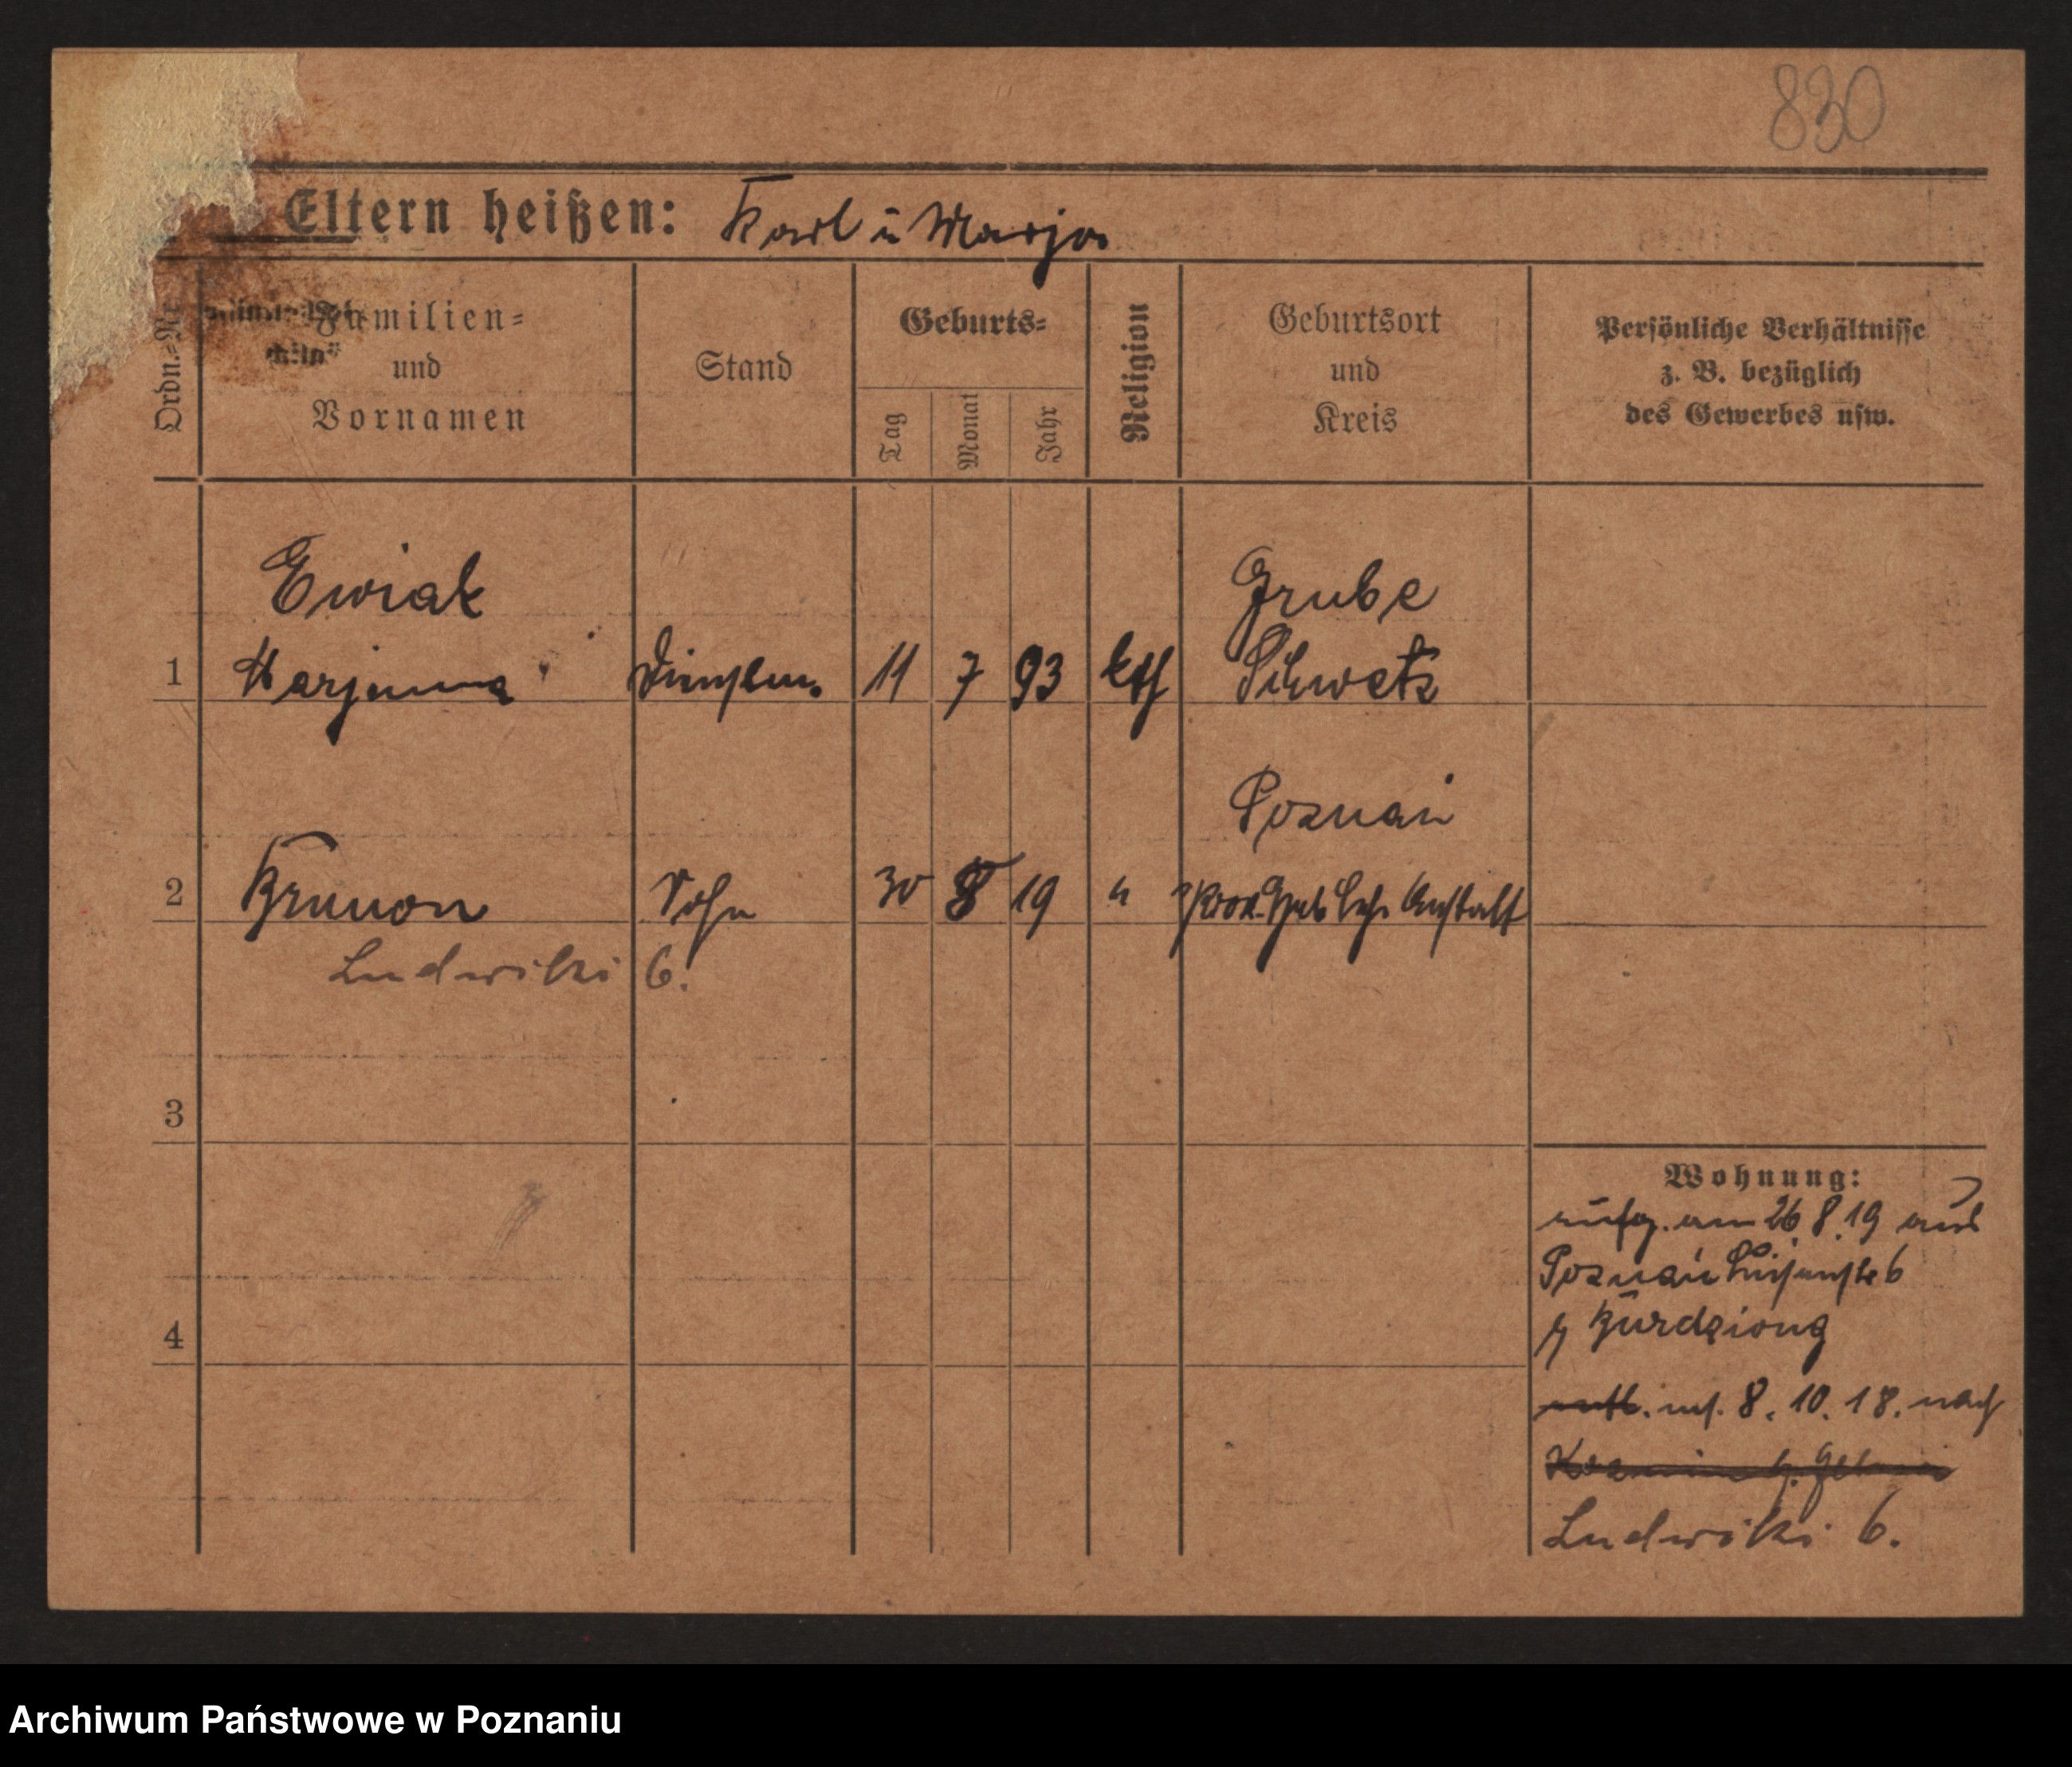 830
Eltern heißen: Karl u Marja
Ordn.=Nr.
Familien=
und
Vornamen
Stand
Geburts=
Tag
Monat
Jahr
Religion
Geburtsort
und
Kreis
Persönliche Verhältnisse
z. B. bezüglich
des Gewerbes usw.
Ewiak
Grube
1 Marjanna 11 7 93 kth Schwetz
Poznań
2 Brunon Sohn 30 8 19 " Anstalt
Ludwiki 6.
3
4
Wohnung:
am 26.8.19 aus
Poznań 6
8. 10. 18. nach
Ludwiki 6.
Archiwum Państwowe w Poznaniu